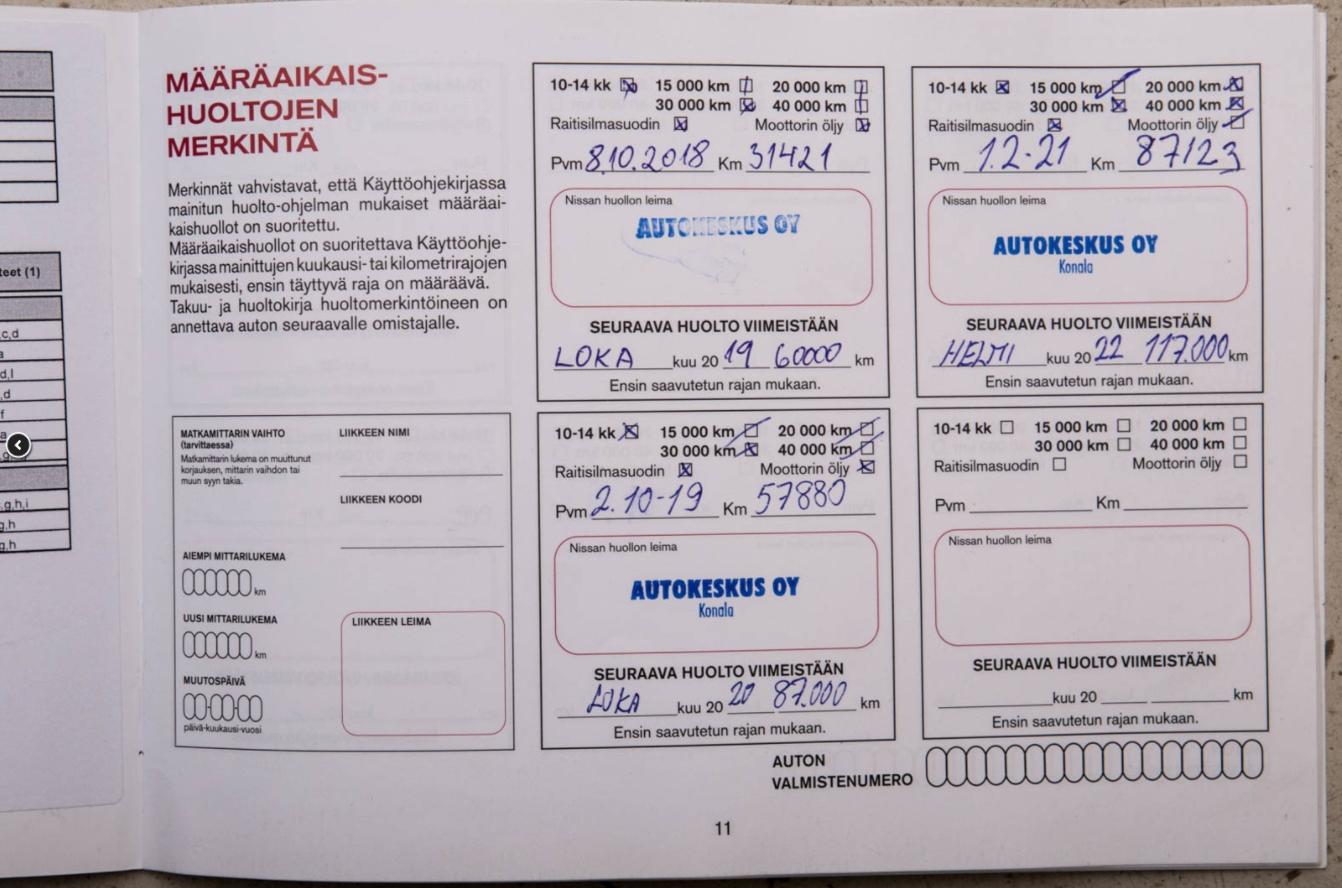 MÄÄRÄAIKAIS-
HUOLTOJEN
MERKINTÄ
Merkinnät vahvistavat, että Käyttöohjekirjassa
mainitun huolto-ohjelman mukaiset määräai-
kaishuollot on suoritettu.
Määräaikaishuollot on suoritettava Käyttöohje-
kirjassa mainittujen kuukausi- tai kilometrirajojen
mukaisesti, ensin täyttyvä raja on määräävä.
Takuu- ja huoltokirja huoltomerkintöineen on
annettava auton seuraavalle omistajalle.
teet (1)
c,d
a
d,l
,d
f
a
g,h,i
g,h
g,h
MATKAMITTARIN VAIHTO
(tarvittaessa)
Matkamittarin lukema on muuttunut
korjauksen, mittarin vaihdon tai
muun syyn takia.
LIIKKEEN NIMI
LIIKKEEN KOODI
AIEMPI MITTARILUKEMA
km
UUSI MITTARILUKEMA
km
MUUTOSPÄIVÄ
päivä-kuukausi-vuosi
LIIKKEEN LEIMA
10-14 kk 15 000 km 20 000 km
30 000 km 40 000 km
Raitisilmasuodin Moottorin öljy
Pvm 8.10.2018 Km 31421
Nissan huollon leima
AUTOKESKUS OY
SEURAAVA HUOLTO VIIMEISTÄÄN
LOKA kuu 20 19 60000 km
Ensin saavutetun rajan mukaan.
10-14 kk 15 000 km 20 000 km
30 000 km 40 000 km
Raitisilmasuodin Moottorin öljy
Pvm 2.10-19 Km 57880
Nissan huollon leima
AUTOKESKUS OY
Konala
SEURAAVA HUOLTO VIIMEISTÄÄN
LOKA kuu 20 20 87.000 km
Ensin saavutetun rajan mukaan.
10-14 kk 15 000 km 20 000 km
30 000 km 40 000 km
Raitisilmasuodin Moottorin öljy
Pvm 1.2-21 Km 87123
Nissan huollon leima
AUTOKESKUS OY
Konala
SEURAAVA HUOLTO VIIMEISTÄÄN
HELMI kuu 20 22 117.000 km
Ensin saavutetun rajan mukaan.
10-14 kk 15 000 km 20 000 km
30 000 km 40 000 km
Raitisilmasuodin Moottorin öljy
Pvm Km
Nissan huollon leima
SEURAAVA HUOLTO VIIMEISTÄÄN
kuu 20 km
Ensin saavutetun rajan mukaan.
AUTON
VALMISTENUMERO
11